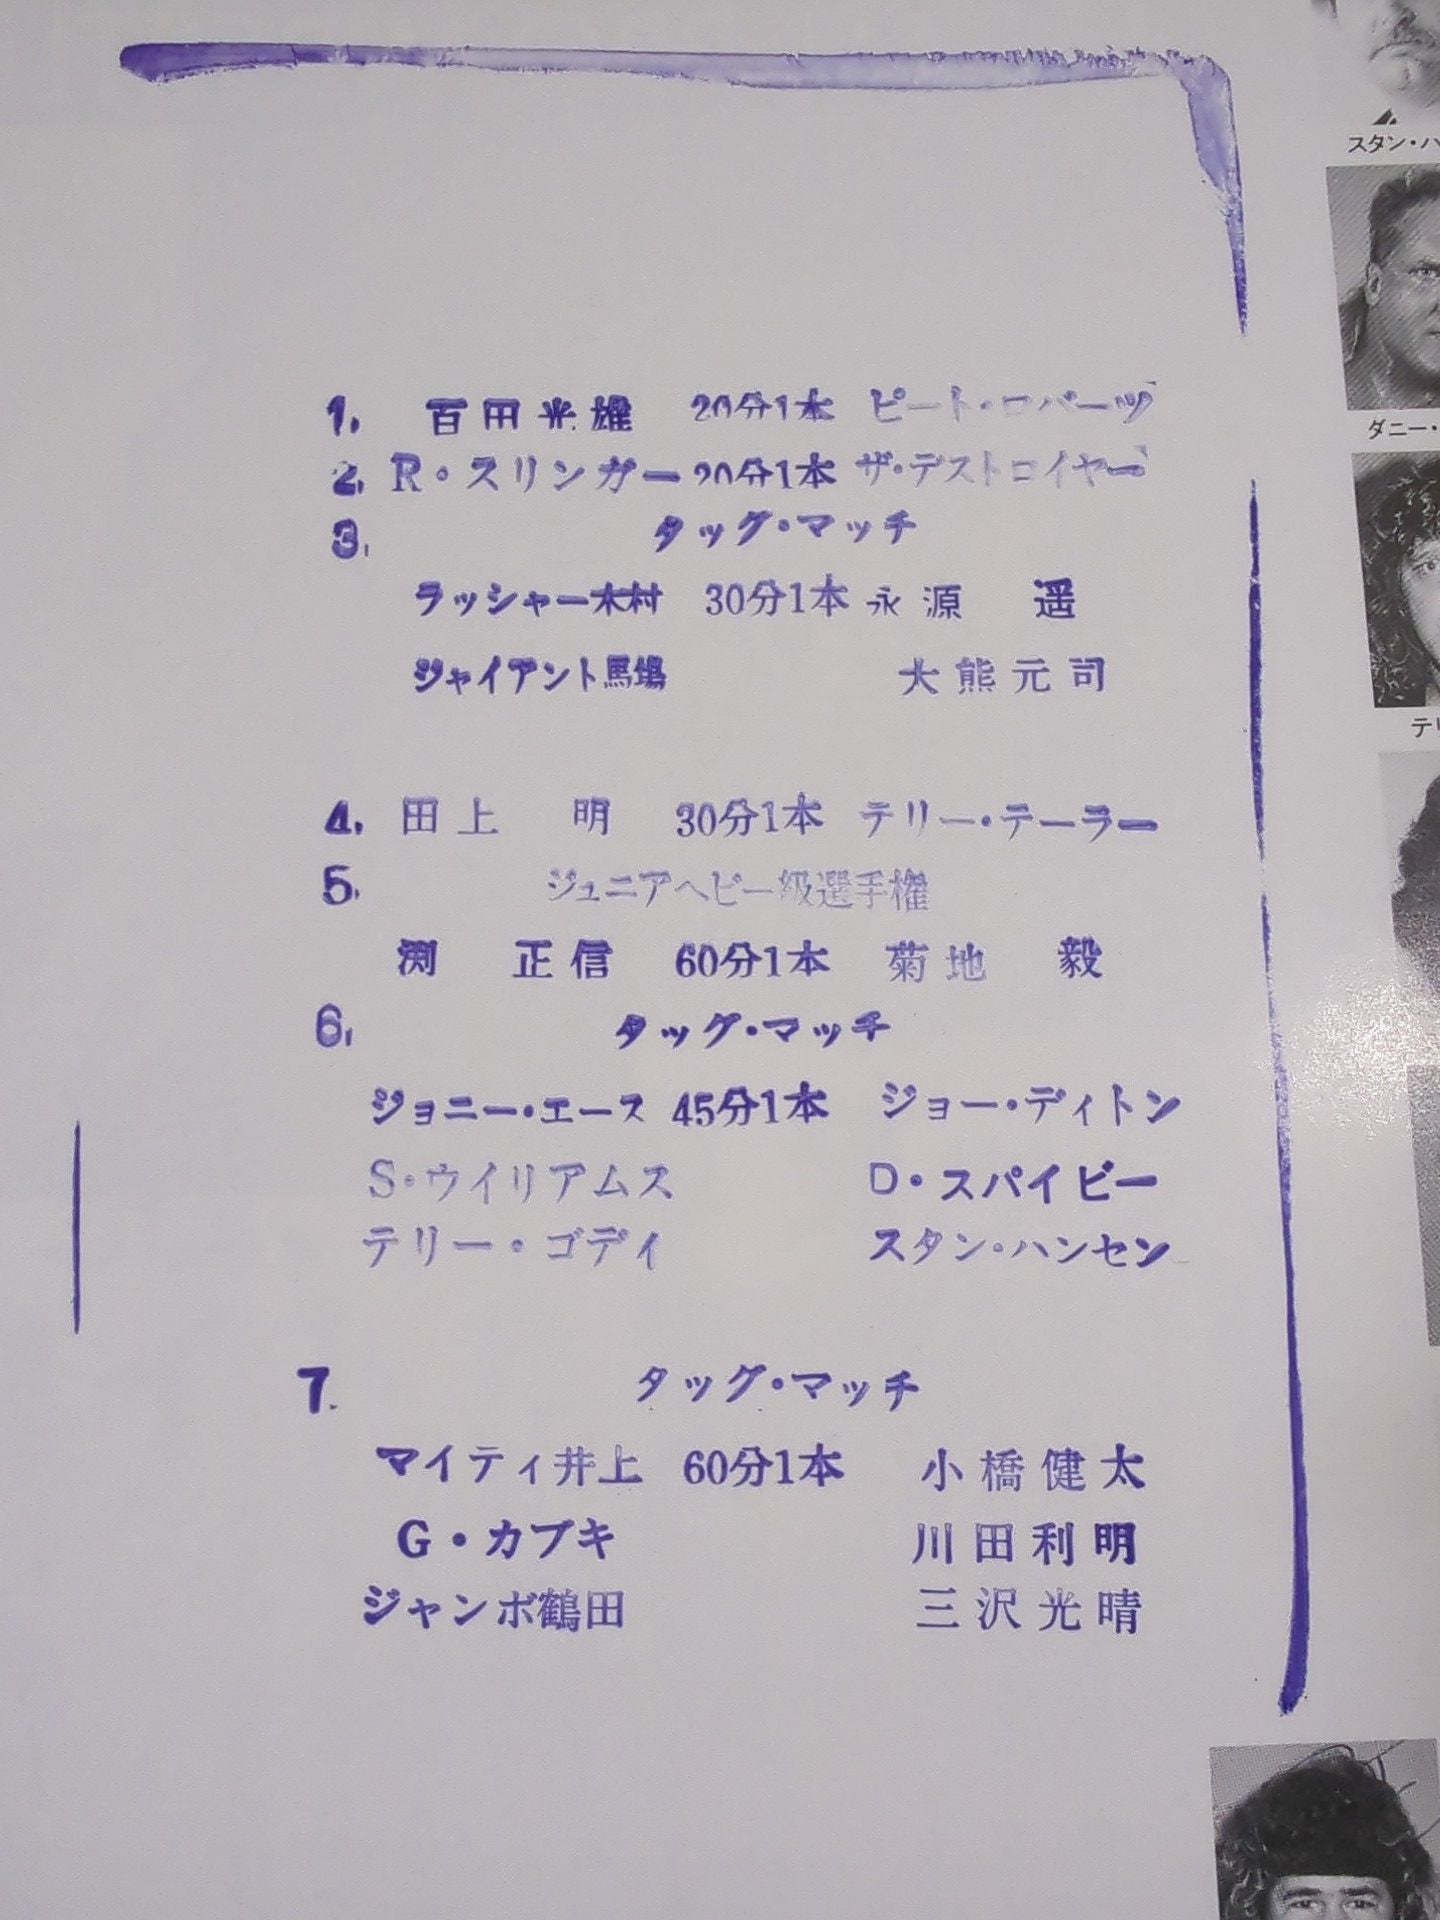 スタン・ハ
ダニー・
テリ
1. 百田光雄 20分1本 ピート・ロバーツ
2. R・スリンガー 20分1本 ザ・デストロイヤー
3. タッグ・マッチ
ラッシャー木村 30分1本 永源 遥
ジャイアント馬場 大熊元司
4. 田上 明 30分1本 テリー・テーラー
5. ジュニアヘビー級選手権
渕 正信 60分1本 菊地 毅
6. タッグ・マッチ
ジョニー・エース 45分1本 ジョー・ディトン
S・ウイリアムス D・スパイビー
テリー・ゴディ スタン・ハンセン
7. タッグ・マッチ
マイティ井上 60分1本 小橋健太
G・カブキ 川田利明
ジャンボ鶴田 三沢光晴